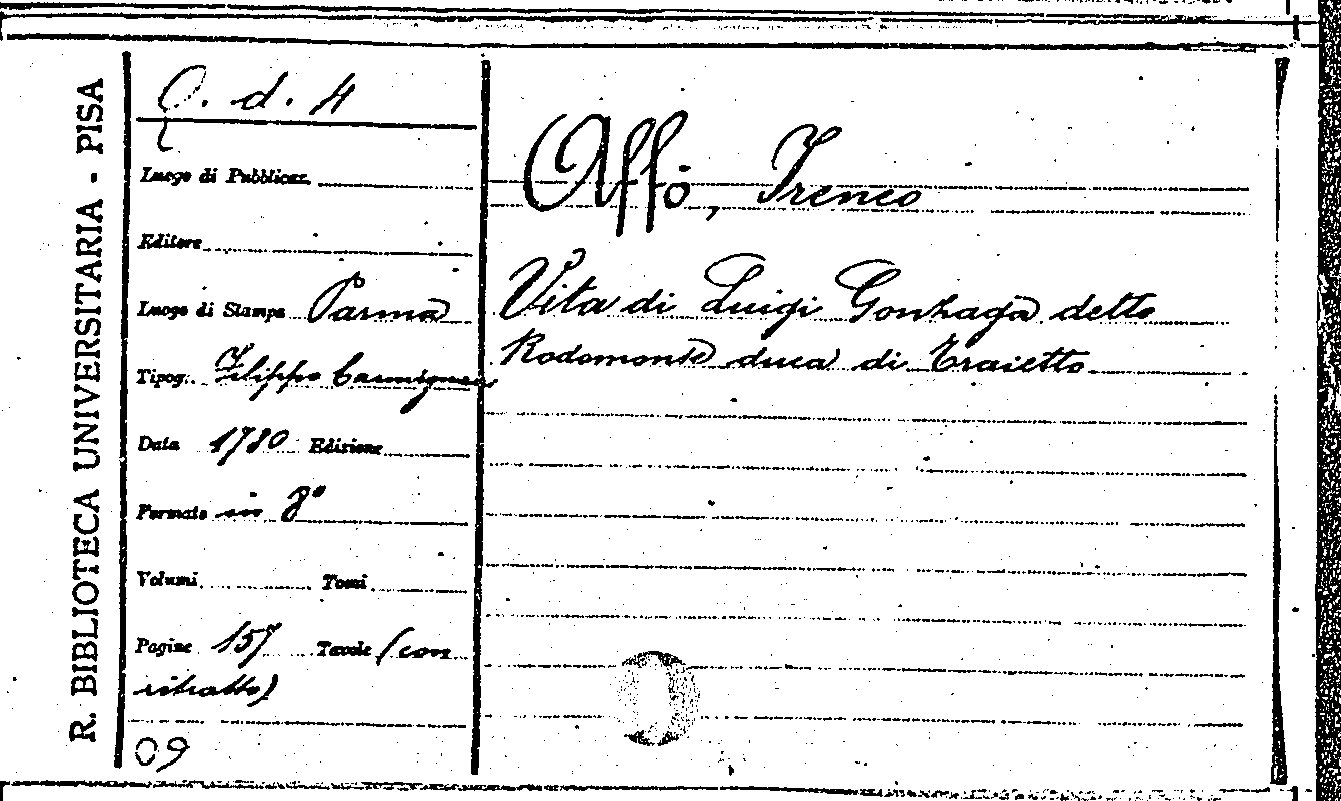 R. BIBLIOTECA UNIVERSITARIA - PISA
Q. d. 4
Luogo di Pubblicaz.
Editore
Luogo di Stampa Parma
Tipog. Filippo Carmignani
Data 1780 Edizione
Formato in 8°
Volumi Tomi
Pagine 157 Tavole (con
ritratto)
09
Affò, Ireneo
Vita di Luigi Gonzaga detto
Rodomonte duca di Traietto